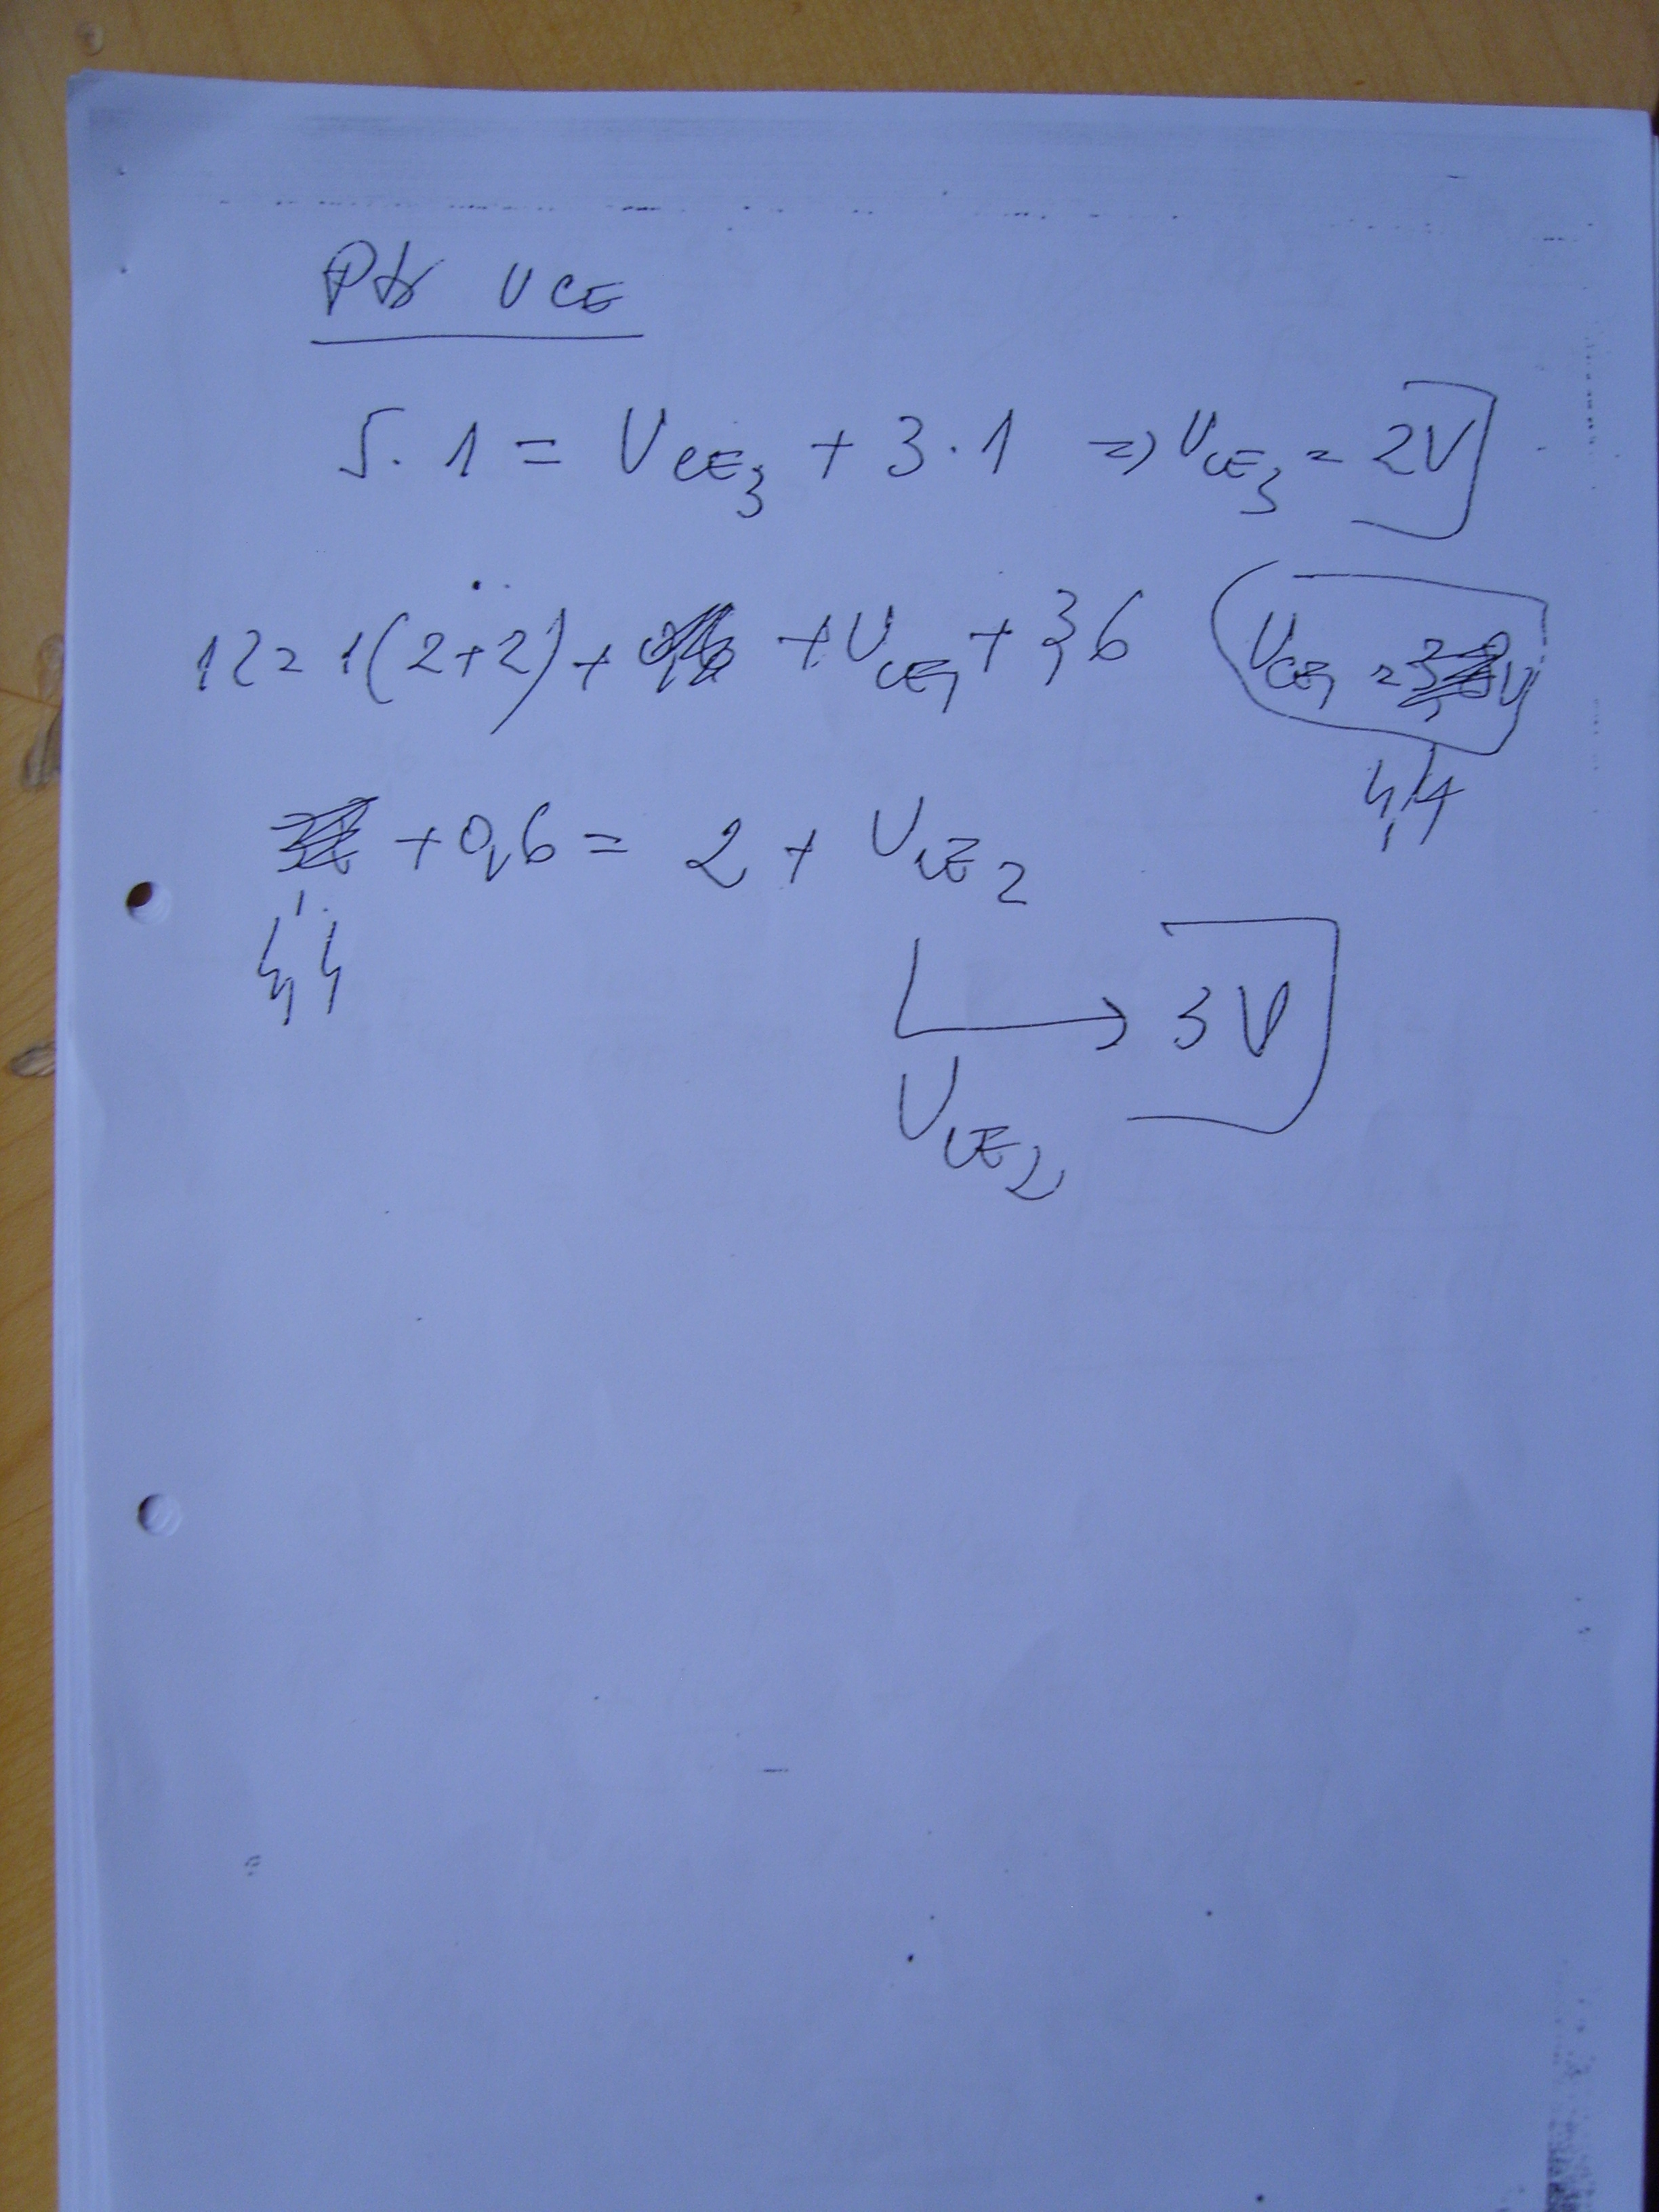 Ptr UCE
5.1 = UCE3 + 3.1 => UCE3 = 2V
12 = 1(2+2) + + UCE1 + 3,6 UCE1 = V
4,4
+0,6 = 2 + UCE2
4,4
3V
UCE2